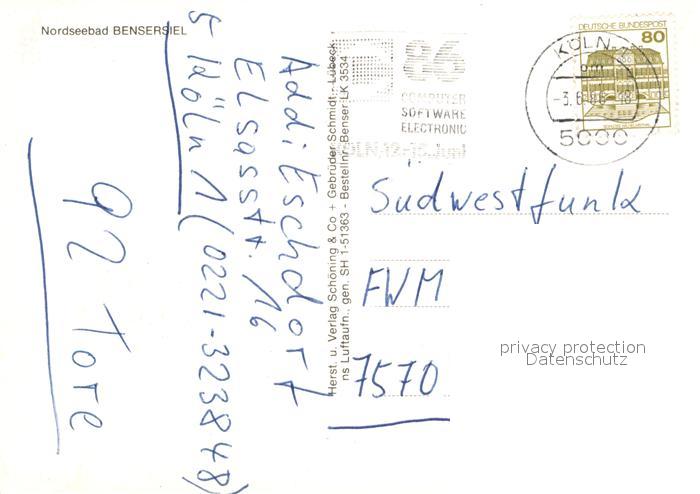 Nordseebad BENSERSIEL
Addi Eschdorf
Elsasstr. 16
5 Köln 1 (0221-323848)
92 Tore
Herst. u. Verlag Schöning & Co + Gebrüder Schmidt - Lübeck
ns Luftaufn., gen. SH 1-51363 - Bestellnr. Benser LK 3534
86
COMPUTER
SOFTWARE
ELECTRONIC
KÖLN, 12.-15. Juni
KÖLN
5000
DEUTSCHE BUNDESPOST
80
Südwestfunk
FWM
7570
privacy protection
Datenschutz